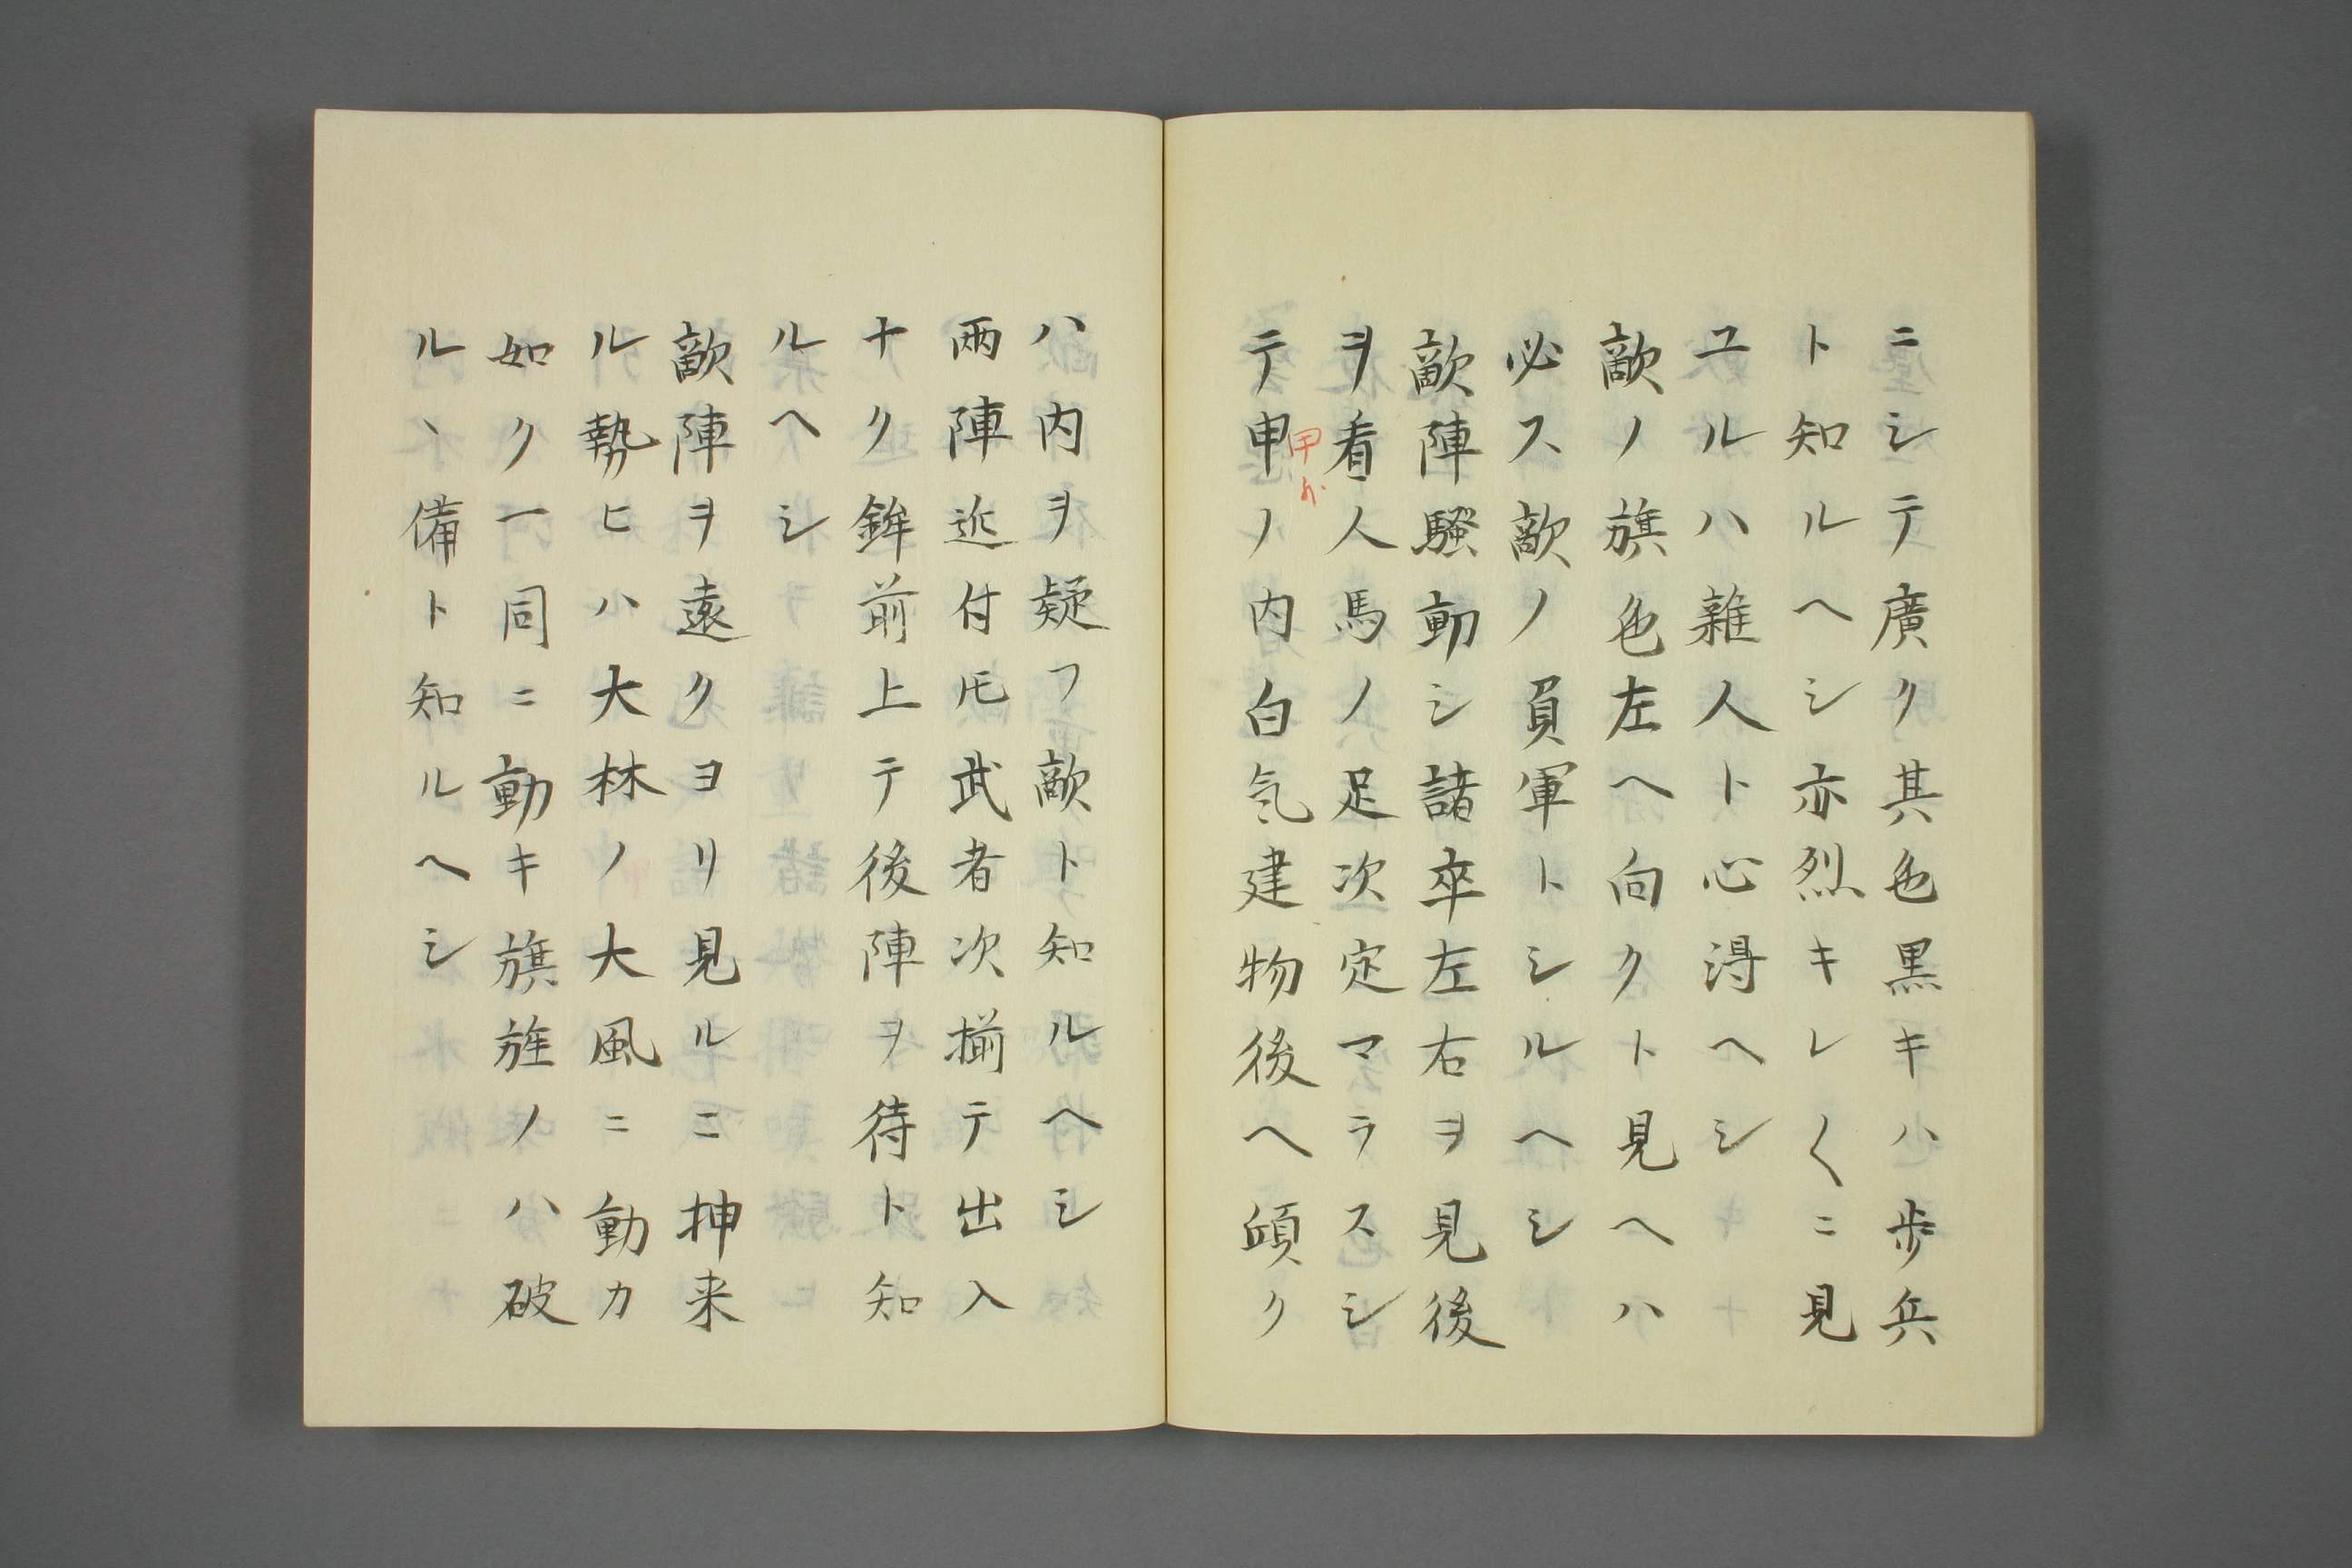 ニシテ廣ク其色黒キハ歩兵
ト知ルヘシ亦烈キレ〱ニ見
ユルハ雜人ト心淂ヘシ
敵ノ旗色左ヘ向クト見ヘハ
必ス敵ノ負軍トシルヘシ
敵陣騒動シ諸卒左右ヲ見後
ヲ看人馬ノ足次定マラスシ
テ申ノ内白気建物後ヘ傾ク
甲カ
ハ内ヲ疑フ敵ト知ルヘシ
兩陣近付𪜈武者次揃テ出入
ナク鉾前上テ後陣ヲ待ト知
ルヘシ
敵陣ヲ遠クヨリ見ルニ押来
ル勢ヒハ大林ノ大風ニ動カ
如ク一同ニ動キ旗旌ノハ破
ルヽ備ト知ルヘシ